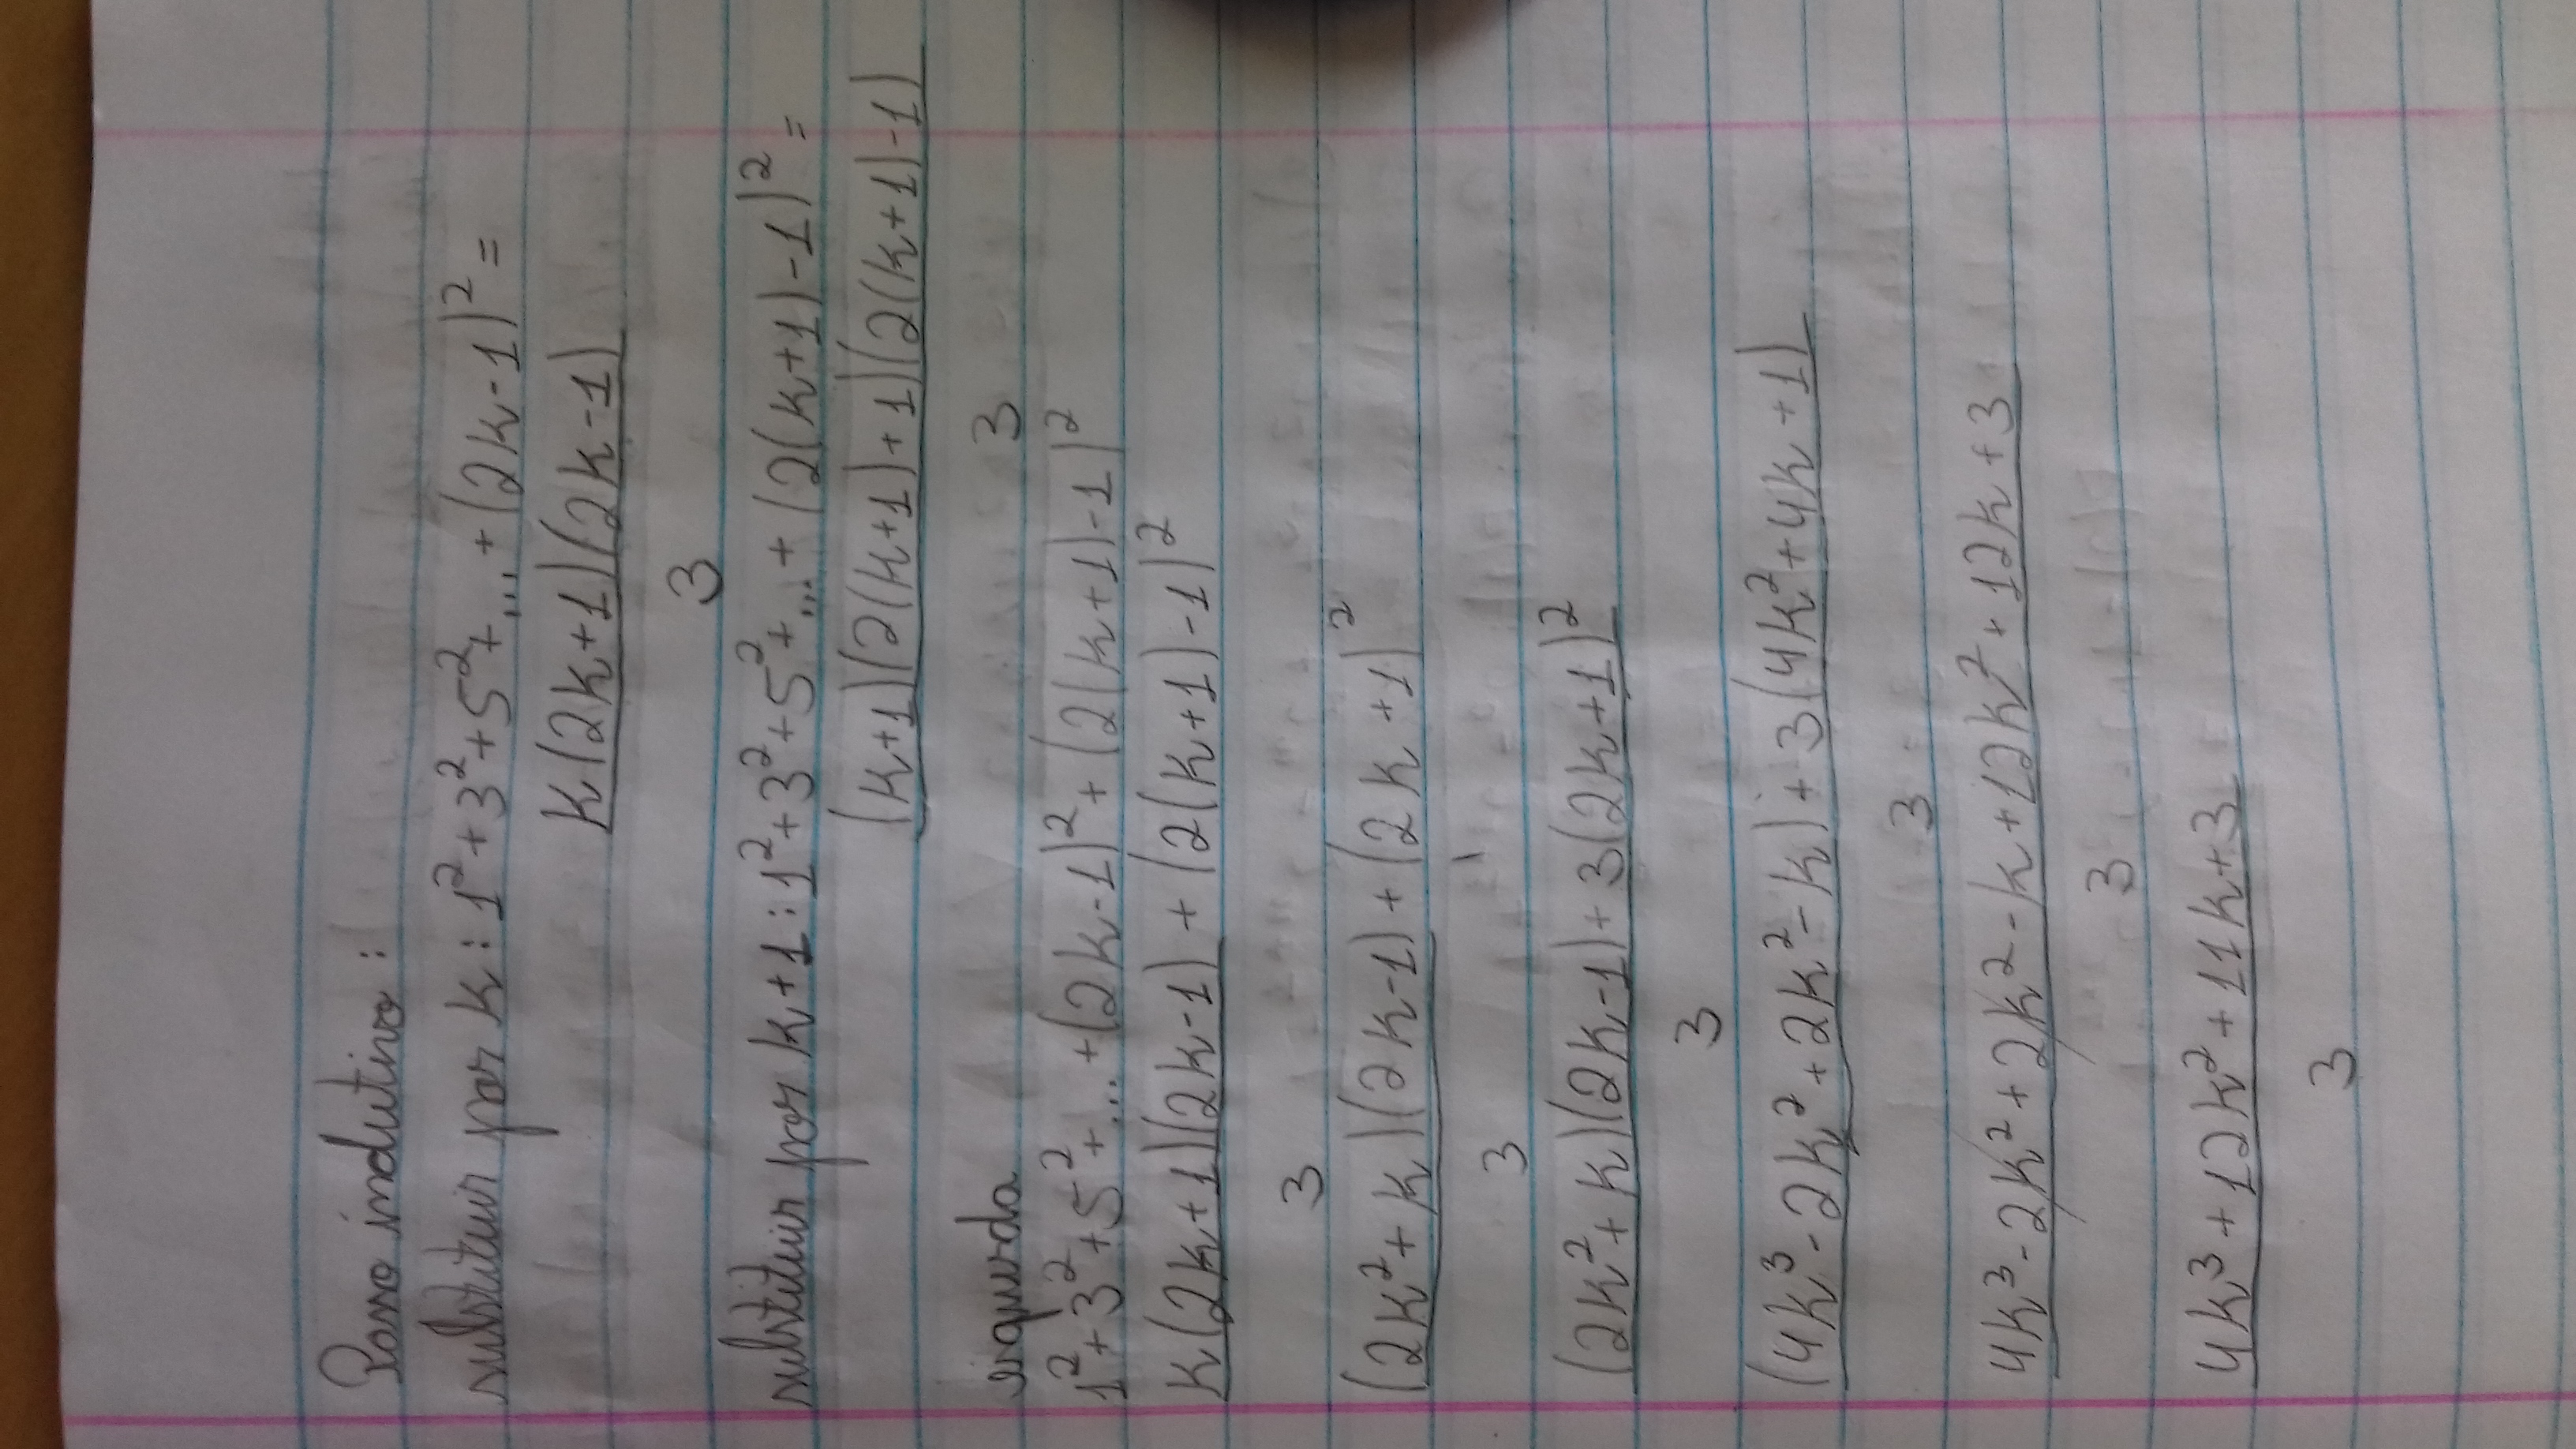 Passo indutivo:
substituir por k: 1² + 3² + 5² + ... + (2k-1)² =
k(2k+1)(2k-1)
3
substituir por k+1: 1² + 3² + 5² + ... + (2(k+1)-1)² =
(k+1)(2(k+1)+1)(2(k+1)-1)
3
esquerda
1² + 3² + 5² + ... + (2k-1)² + (2(k+1)-1)²
k(2k+1)(2k-1) + (2(k+1)-1)²
3
(2k²+k)(2k-1) + (2k+1)²
3
(2k²+k)(2k-1) + 3(2k+1)²
3
(4k³-2k²+2k²-k) + 3(4k²+4k+1)
3
4k³-2k²+2k²-k+12k²+12k+3
3
4k³+12k²+11k+3
3